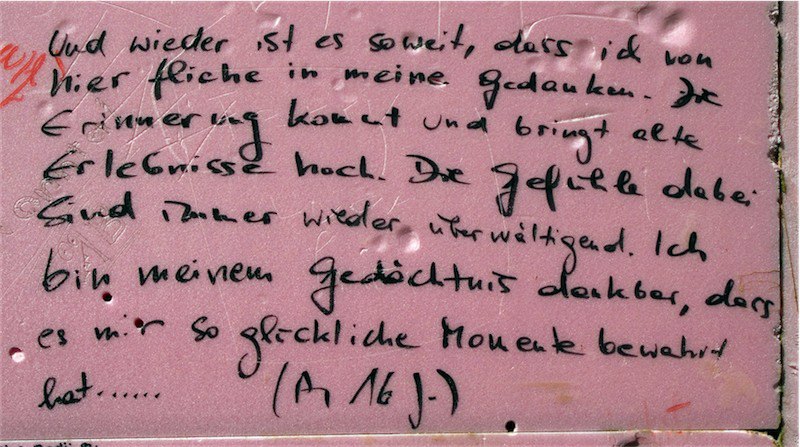 Und wieder ist es soweit, dass ich von
hier fliehe in meine Gedanken. Die
Erinnerung kommt und bringt alte
Erlebnisse hoch. Die Gefühle dabei
Sind immer wieder überwältigend. Ich
bin meinem Gedächtnis dankbar, dass
es mir so glückliche Momente bewahrt
hat......
(A, 16 J.)